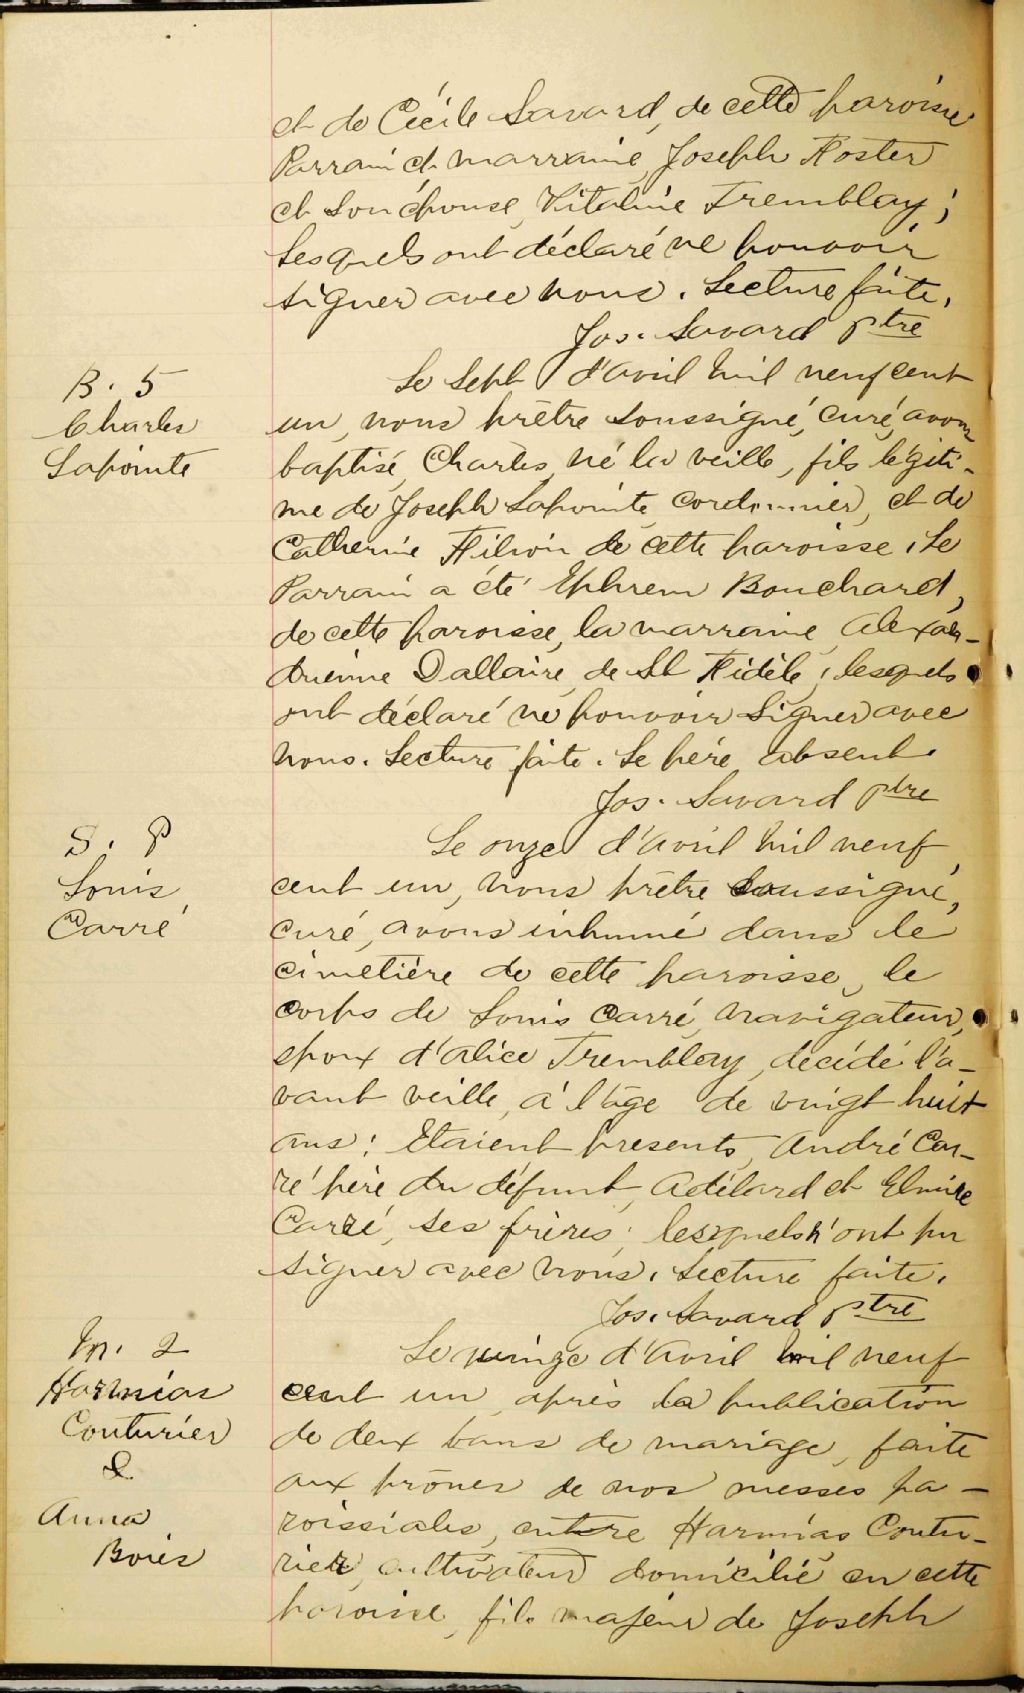 et de Cécile Savard, de cette paroisse
Parrain et marraine Joseph Foster
et son épouse Vitaline Tremblay;
lesquels ont déclaré ne pouvoir
signer avec nous. Lecture faite.
Jos. Savard ptre
B. 5
Charles
Lapointe
Le sept d'avril mil neuf cent
un, nous prêtre soussigné, curé, avons
baptisé, Charles, né la veille, fils légiti-
me de Joseph Lapointe cordonnier, et de
Catherine de cette paroisse. Le
Parrain a été Ephrem Bouchard,
de cette paroisse, la marraine Alexan-
drienne Dallaire, de St Fidèle; lesquels
ont déclaré ne pouvoir signer avec
nous. Lecture faite. Le père absent.
Jos. Savard ptre
S. P
Louis
Carré
Le onze d'avril mil neuf
cent un, nous prêtre soussigné,
curé, avons inhumé dans le
cimetière de cette paroisse, le
corps de Louis Carré, navigateur,
époux d'Alice Tremblay, décédé l'a-
vant veille, à l'âge de vingt huit
ans: Etaient présents, André Car-
ré père du défunt, Adélard et Elmire
Carré, ses frères; lesquels n'ont pu
signer avec nous. Lecture faite.
Jos. Savard ptre
m. 2
Harmias
Couturier
&
Anna
Boies
Le d'avril mil neuf
cent un, après la publication
de deux bans de mariage, faite
aux prônes de nos messes pa-
roissiales, entre Harmias Coutu-
rier, cultivateur domicilié en cette
paroisse, fils majeur de Joseph